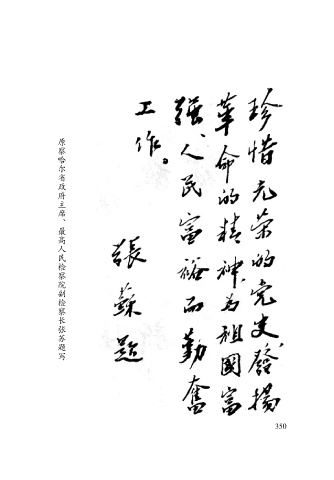 珍惜光荣的党史,發揚
革命的精神,为祖國富
強、人民富裕而勤奮
工作。
張蘇題
原察哈尔省政府主席、最高人民检察院副检察长张苏题写
350